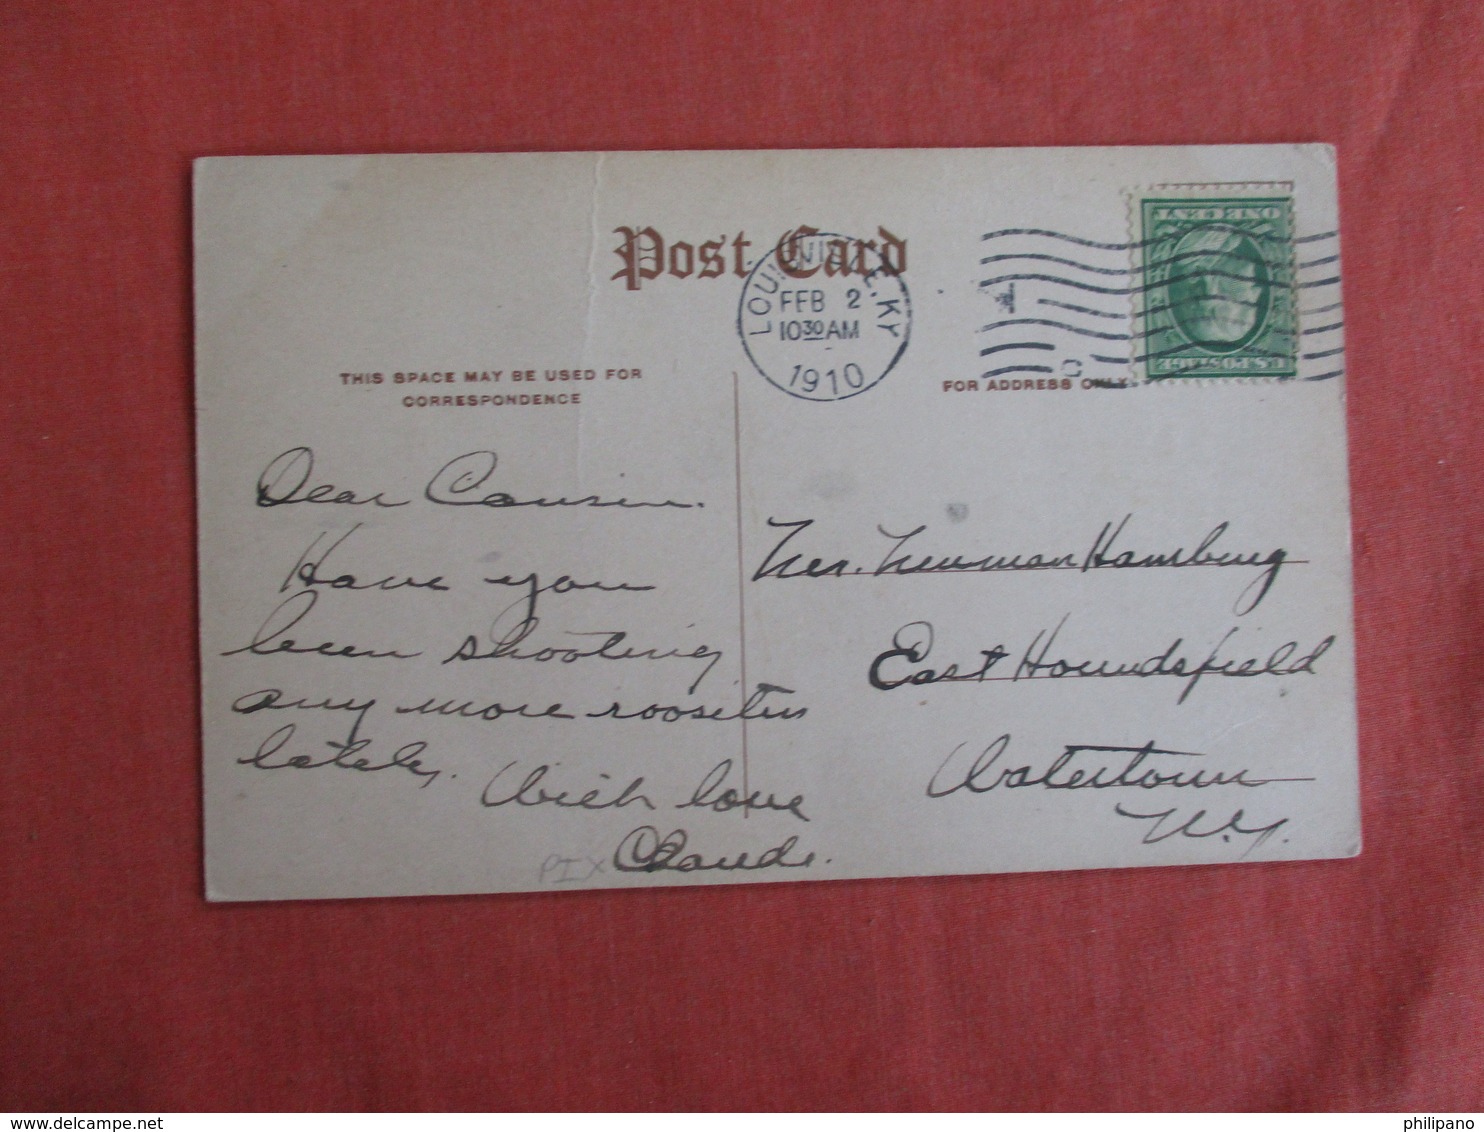 Post Card
LOUISVILLE, KY
FEB 2
10 30 AM
1910
THIS SPACE MAY BE USED FOR
CORRESPONDENCE
FOR ADDRESS ONLY
Dear Cousin.
Have you
been shooting
any more roosters
lately. With love
Claude.
PIX
Mr. Newman Hamburg
East Houndsfield
Watertown
N.Y.
U.S.POSTAGE
delcampe.net
philipano